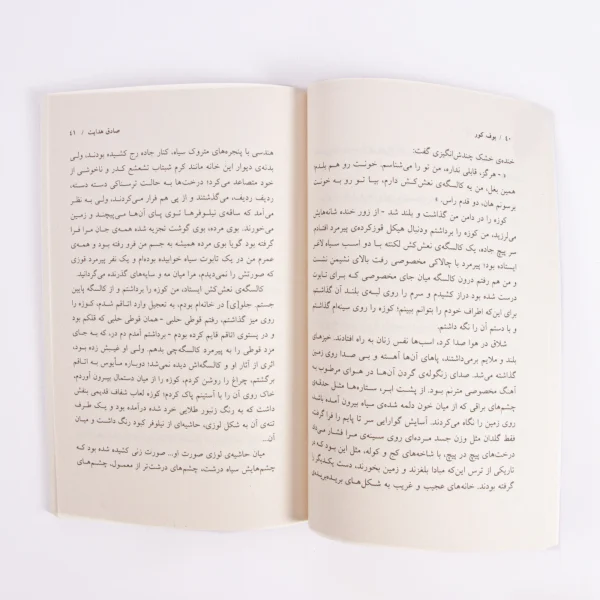 ۴۰ / بوف کور
خنده‌ی خشک چندش‌انگیزی گفت:
« - هرگز، قابلی نداره، من تو را می‌شناسم. خونت رو هم بلدم
همین بغل، من یه کالسگه‌ی نعش‌کش دارم، بیا تو رو به خونت
برسونم هان، دو قدم راس. »
کوزه را در دامن من گذاشت و بلند شد - از زور خنده شانه‌هایش
می‌لرزید، من کوزه را برداشتم ودنبال هیکل قوزکرده‌ی پیرمرد افتادم.
سر پیچ جاده، یک کالسگه‌ی نعش‌کش لکنته با دو اسب سیاه لاغر
ایستاده بود؛ پیرمرد با چالاکی مخصوصی رفت بالای نشیمن نشست
و من هم رفتم درون کالسگه میان جای مخصوصی که برای تابوت
درست شده بود دراز کشیدم و سرم را روی لبه‌ی بلند آن گذاشتم
برای این‌که اطراف خودم را بتوانم ببینم؛ کوزه را روی سینه‌ام گذاشتم
و با دستم آن را نگه داشتم.
شلاق در هوا صدا کرد، اسب‌ها نفس زنان به راه افتادند. خیزهای
بلند و ملایم برمی‌داشتند، پاهای آن‌ها آهسته و بی صدا روی زمین
گذاشته می‌شد. صدای زنگوله‌ی گردن آن‌ها در هوای مرطوب به
آهنگ مخصوصی مترنم بود. از پشت ابر، ستاره‌ها مثل حدقه‌ی
چشم‌های براقی که از میان خون دلمه شده‌ی سیاه بیرون آمده باشد
روی زمین را نگاه می‌کردند. آسایش گوارایی سر تا پایم را فرا گرفته
فقط گلدان مثل وزن جسد مرده‌ای روی سینه‌ی مرا فشار می‌داد
درخت‌های پیچ در پیچ، با شاخه‌های کج و کوله، مثل این بود که در
تاریکی از ترس این‌که مبادا بلغزند و زمین بخورند، دست یکدیگر را
گرفته بودند. خانه‌های عجیب و غریب به شکل‌های بریده‌بریده‌ی
صادق هدایت / ۴۱
هندسی با پنجره‌های متروک سیاه، کنار جاده رج کشیده بودند، ولی
بدنه‌ی دیوار این خانه مانند کرم شبتاب تشعشع کدر و ناخوشی از
خود متصاعد می‌کرد؛ درخت‌ها به حالت ترسناکی دسته دسته،
ردیف ردیف، می‌گذشتند و از پی هم فرار می‌کردند، ولی به نظر
می‌آمد که ساقه‌ی نیلوفرها توی پای آن‌ها می‌پیچند و زمین
می‌خورند. بوی مرده، بوی گوشت تجزیه شده همه‌ی جان مرا فرا
گرفته بود گویا بوی مرده همیشه به جسم من فرو رفته بود و همه‌ی
عمرم من در یک تابوت سیاه خوابیده بوده‌ام و یک نفر پیرمرد قوزی
که صورتش را نمی‌دیدم، مرا میان مه و سایه‌های گذرنده می‌گردانید
کالسگه‌ی نعش‌کش ایستاد، من کوزه را برداشتم و از کالسگه پایین
جستم. جلو[ی] در خانه‌ام بودم، به تعجیل وارد اتاقم شدم، کوزه را
روی میز گذاشتم، رفتم قوطی حلبی - همان قوطی حلبی که قلکم بود
و در پستوی اتاقم قایم کرده بودم - برداشتم آمدم دم در، که به جای
مزد قوطی را به پیرمرد کالسگه‌چی بدهم. ولی او غیبش زده بود،
اثری از آثار او و کالسگه‌اش دیده نمی‌شد؛ دوباره مأیوس به اتاقم
برگشتم، چراغ را روشن کردم، کوزه را از میان دستمال بیرون آوردم،
خاک روی آن را با آستینم پاک کردم؛ کوزه لعاب شفاف قدیمی بنفش
داشت که به رنگ زنبور طلایی خرد شده درآمده بود و یک طرف
تنه‌ی آن به شکل لوزی، حاشیه‌ای از نیلوفر کبود رنگ داشت و میان
آن..
میان حاشیه‌ی لوزی صورت او.. صورت زنی کشیده شده بود که
چشم‌هایش سیاه درشت، چشم‌های درشت‌تر از معمول، چشم‌های